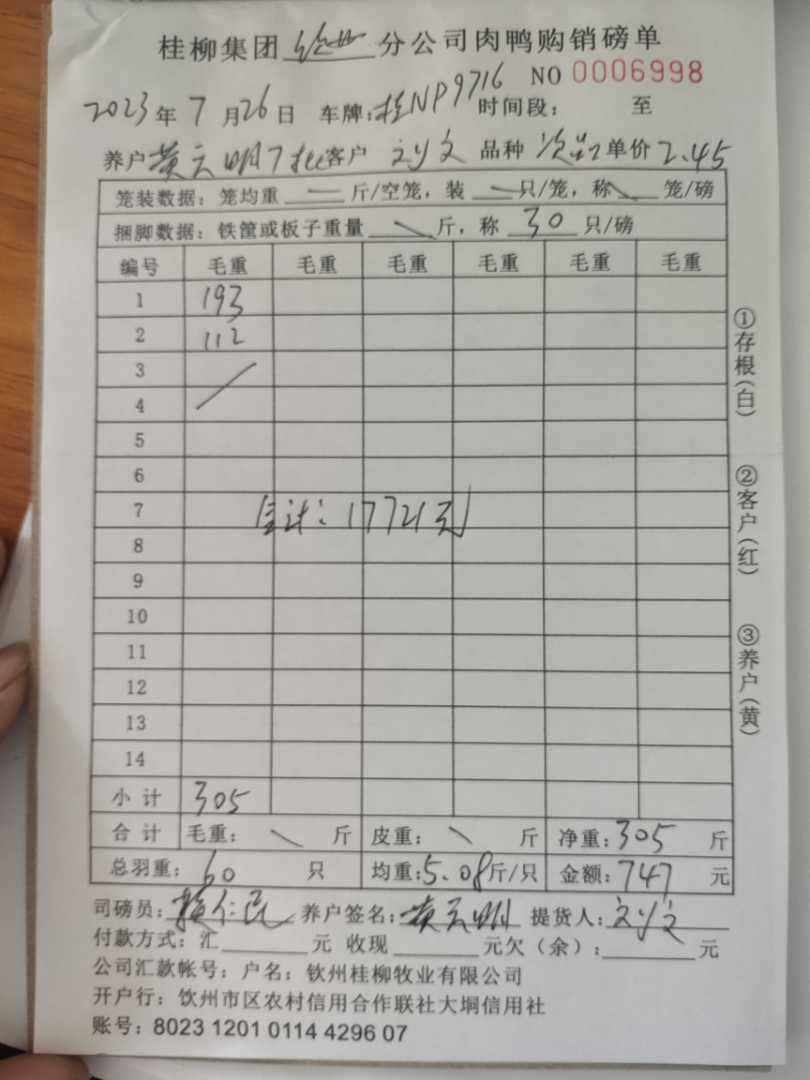 桂柳集团 分公司肉鸭购销磅单
NO 0006998
2023年7月26日 车牌:桂NP9716 时间段: 至
养户 黄云明7批 客户 刘文 品种 次品 单价 2.45
笼装数据: 笼均重 — 斤/空笼, 装 — 只/笼, 称 \ 笼/磅
捆脚数据: 铁筐或板子重量 \ 斤, 称 30 只/磅
编号 毛重 毛重 毛重 毛重 毛重 毛重
1 193
2 112
3
4
5
6
7
合计: 17721元
8
9
10
11
12
13
14
小计 305
合计 毛重: \ 斤 皮重: \ 斤 净重: 305 斤
总羽重: 60 只 均重: 5.08 斤/只 金额: 747 元
司磅员: 仁民 养户签名: 黄云明 提货人: 刘文
付款方式: 汇 元 收现 元欠(余): 元
公司汇款帐号: 户名: 钦州桂柳牧业有限公司
开户行: 饮州市区农村信用合作联社大垌信用社
账号: 8023 1201 0114 4296 07
①存根(白)
②客户(红)
③养户(黄)